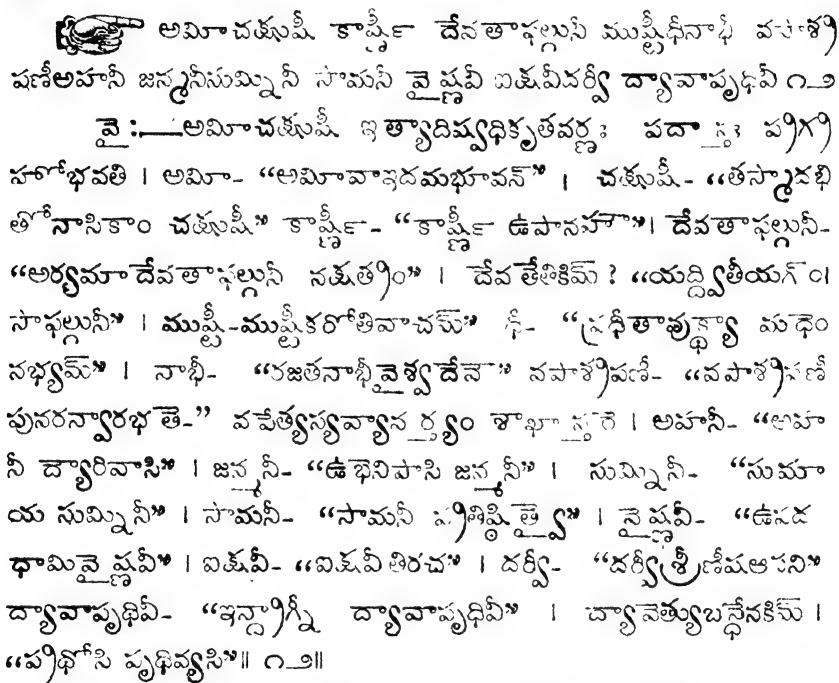 అమీచక్షుషీ కార్‌ష్ణీ దేవతాఫల్గునీ ముష్టీధీనాభీ వపాశ్రి
షణీఅహనీ జన్మనీసుమ్నినీ సామనీ వైష్ణవీ ఐక్షవీదర్వీ ద్యావాపృథివీ ౧౨
వై :—అమీచక్షుషీ ఇత్యాదిష్వధికృతవర్ణః పదాన్తః ప్రగ్ర
హోభవతి । అమీ- “అమీవాఇదమభూవన్” । చక్షుషీ- “తస్మాదభి
తోనాసికాం చక్షుషీ” కార్‌ష్ణీ- “కార్‌ష్ణీ ఉపానహౌ”। దేవతాఫల్గునీ-
“అర్యమాదేవతాఫల్గునీ నక్షత్రం” । దేవతేతికిమ్ ? “యద్ద్వితీయగ్ం।
సాఫల్గునీ” । ముష్టీ-ముష్టీకరోతివాచమ్” ధీ-
నభ్యమ్” । నాభీ- “రజతనాభీవైశ్వదేవౌ” వపాశ్రపణీ- “వపాశ్రపణీ
పునరన్వారభతే-” వపేత్యస్యవ్యావర్త్యం శాఖాన్తరే । అహనీ- “అహ
నీ ద్యౌరివాసి” । జన్మనీ- “ఉభేనిపాసి జన్మనీ” । సుమ్నినీ- “సుమ్నా
య సుమ్నినీ” । సామనీ- “సామనీ ప్రతిష్ఠిత్యై” । వైష్ణవీ- “ఉపద
ధామివైష్ణవీ” । ఐక్షవీ- “ఐక్షవీతిరశ్చ” । దర్వీ- “దర్వీశ్రీణీషఆసని”
ద్యావాపృథివీ- “ఇన్ద్రాగ్నీ ద్యావాపృథివీ” । ద్యావేత్యుబన్ధేనకిమ్ ।
“పృథోసి పృథివ్యసి”॥ ౧౨॥